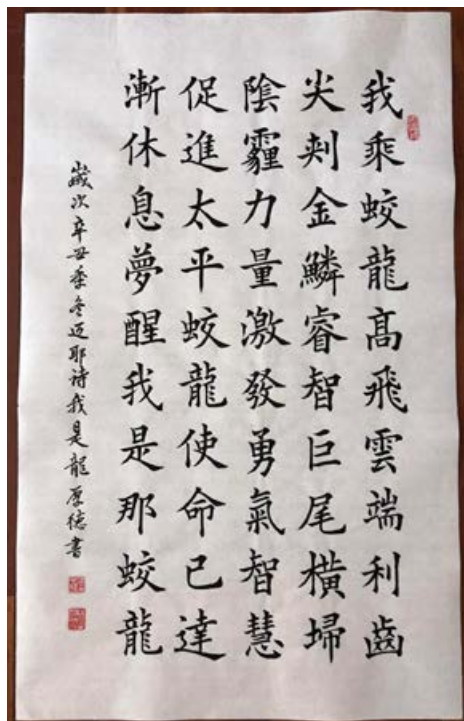 我乘蛟龍髙飛雲端利齒
尖刾金鱗睿智巨尾橫埽
陰霾力量激發勇氣智慧
促進太平蛟龍使命已達
漸休息夢醒我是那蛟龍
歲次辛丑季冬迈耶诗我是龍厚德書